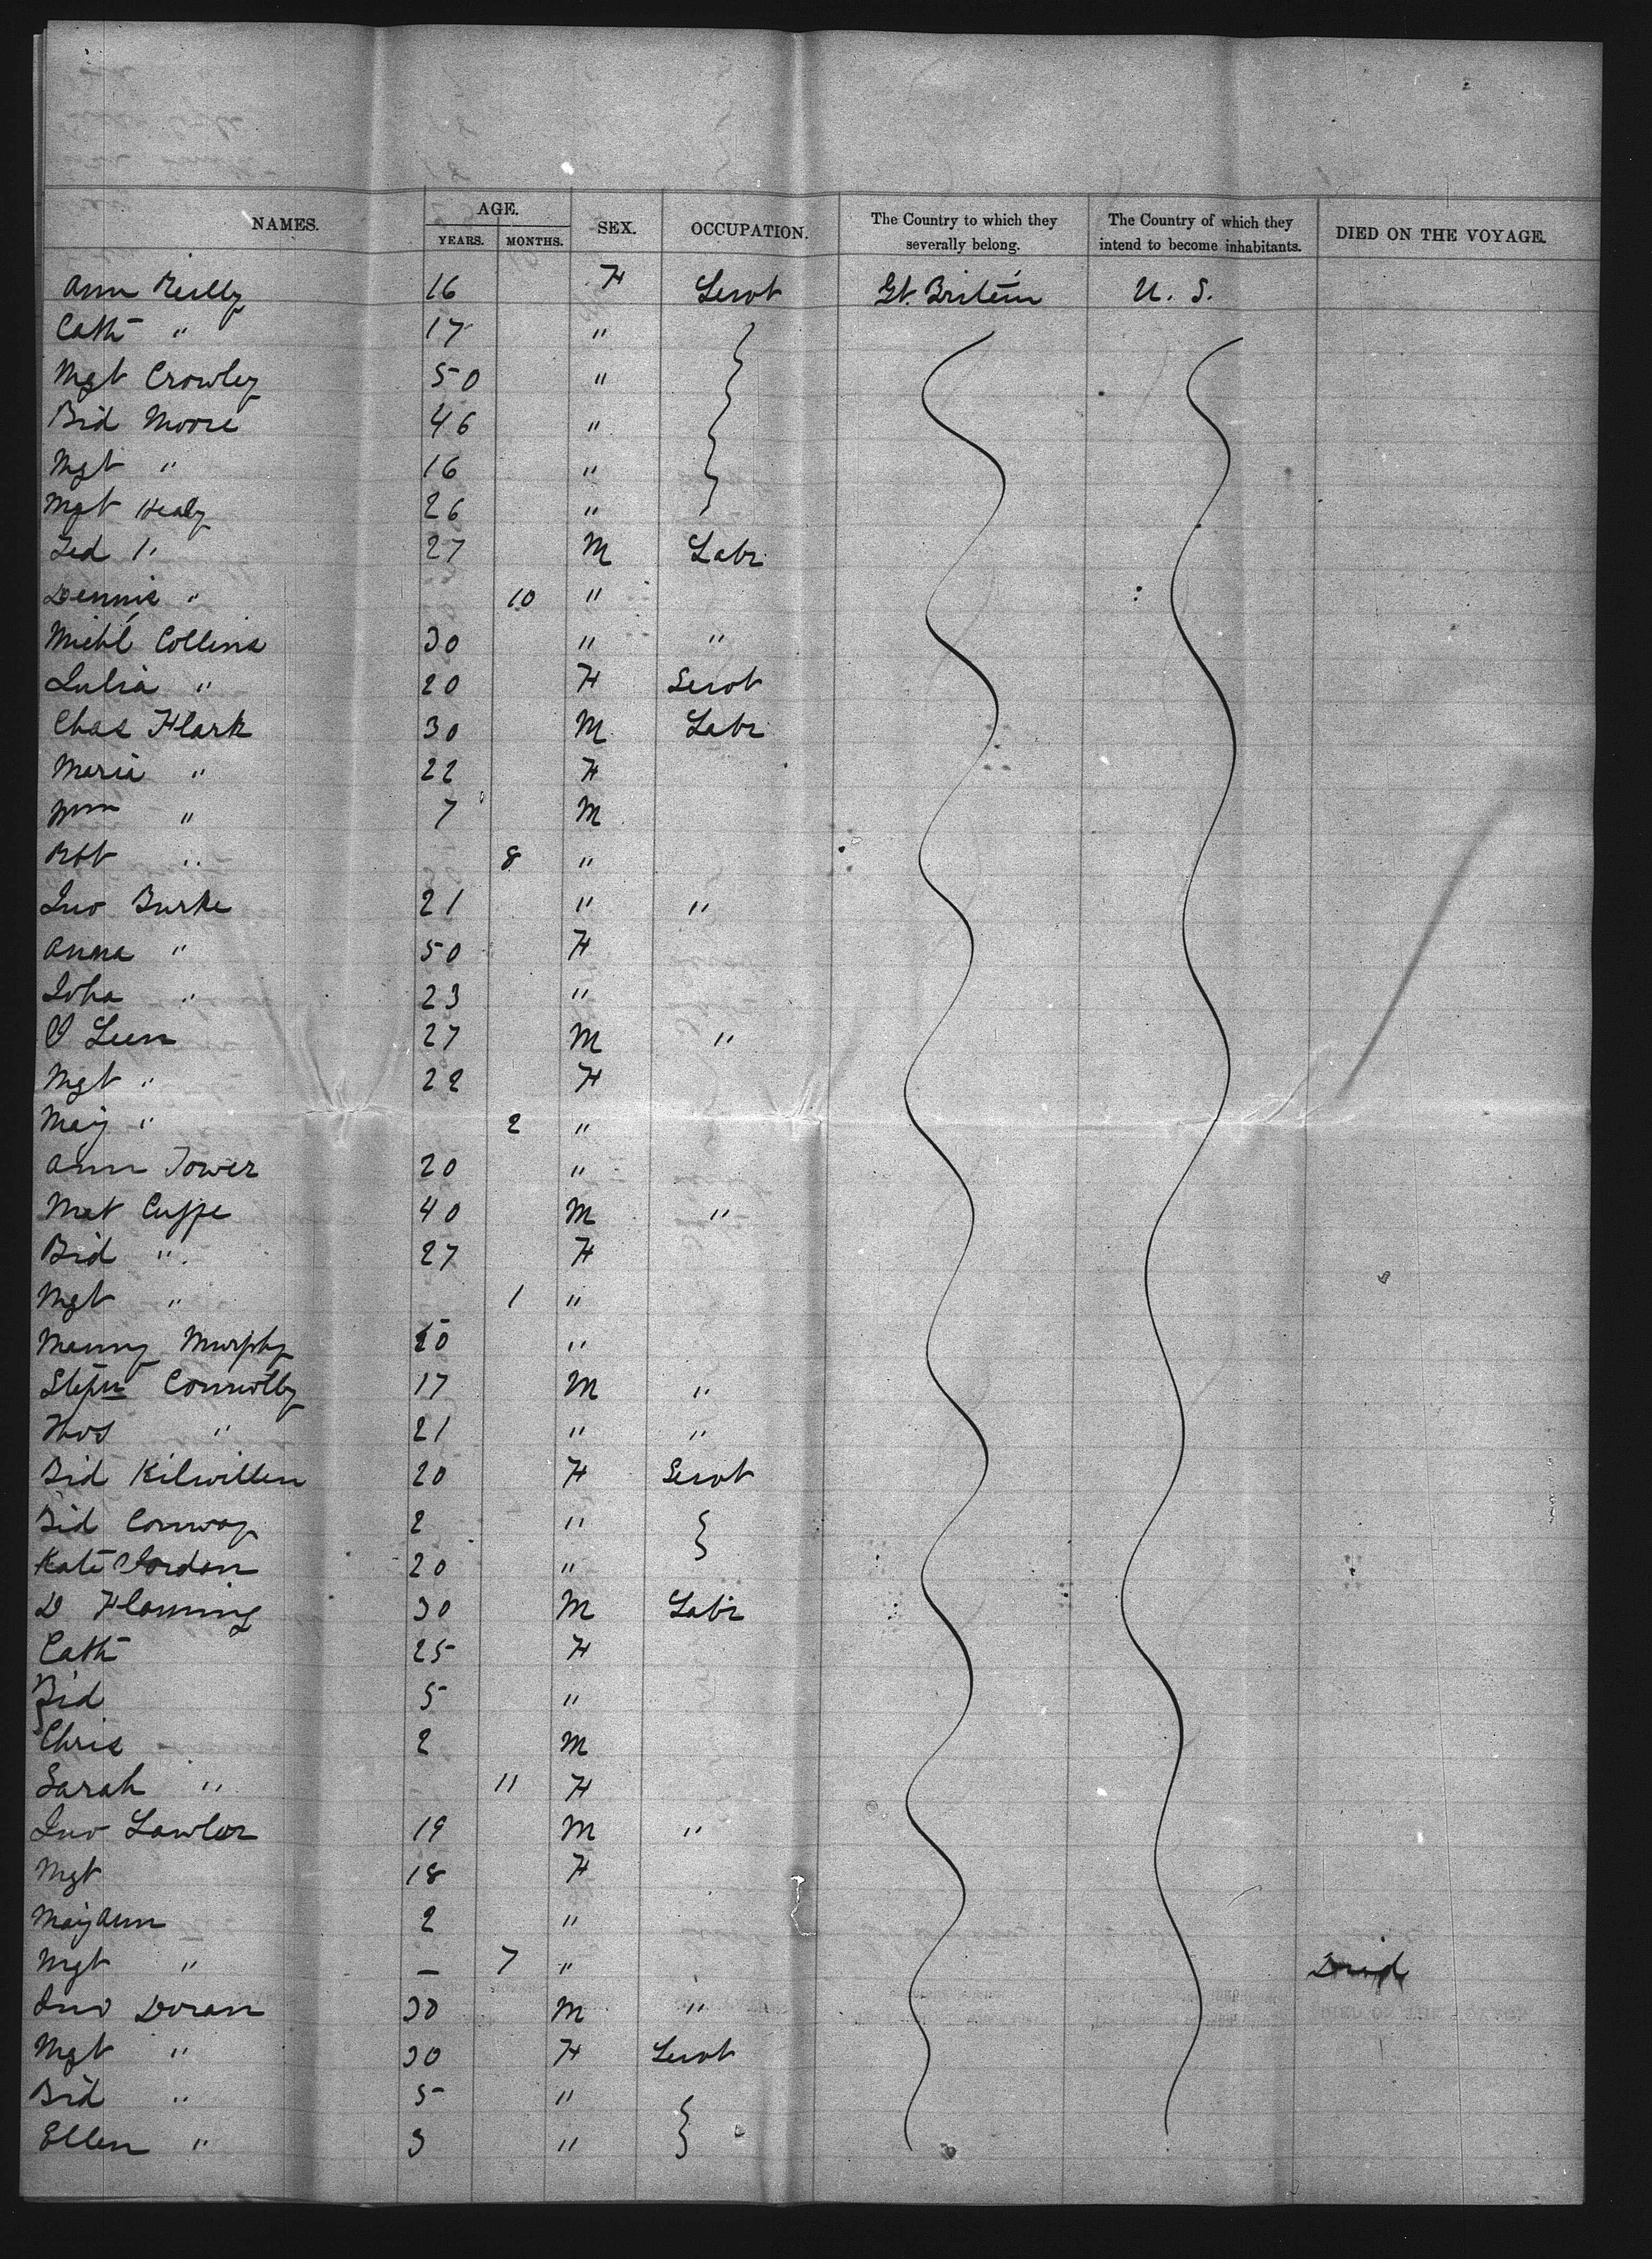 NAMES. AGE. SEX. OCCUPATION. The Country to which they severally belong. The Country of which they intend to become inhabitants. DIED ON THE VOYAGE.
YEARS. MONTHS.
Ann Reilly 16 F Servt Gt. Britain U. S.
Cath " 17 "
Mgt Crowley 50 "
Bid Moore 46 "
Mgt " 16 "
Mgt Healy 26 "
Jed " 27 M Labr
Dennis " 10 "
Michl Collins 30 " "
Julia " 20 F Servt
Chas Flark 30 M Labr
Maria " 22 F
Wm " 7 M
Robt " 8 "
Jno Burke 21 " "
Anna " 50 F
Joha " 23 "
Leen 27 M "
Mgt " 22 F
Mary " 2 "
Ann Tower 20 "
Mat Cuffe 40 M "
Bid " 27 F
Mgt " 1 "
Murphy "
Stephn Connolly 17 M "
Thos " 21 " "
Bid Kilwillen 20 F Servt
Bid Conway 2 "
Kate Jordan 20 "
D Flaming 30 M Labr
Cath 25 F
Bid 5 "
Chris 2 M
Sarah " 11 F
Jno Lawler 19 M "
Mgt 18 F
Mary Ann 2 "
Mgt " — 7 "
Jno Doran 30 M "
Mgt " 30 F Servt
Bid " 5 "
Ellen " 3 "